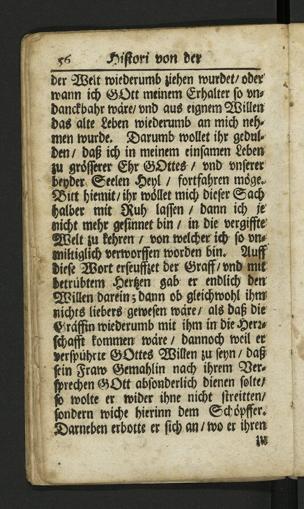 56 Histori von der
der Welt wiederumb ziehen wurdet/ oder
wann ich GOtt meinem Erhalter so vn-
danckbahr wäre/ vnd aus eignem Willen
das alte Leben wiederumb an mich neh-
men wurde. Darumb wollet ihr gedul-
den/ daß ich in meinem einsamen Leben
zu grösserer Ehr GOttes/ vnd vnserer
beyder Seelen Heyl/ fortfahren möge.
Bitt hiemit/ ihr wöllet mich dieser Sach
halber mit Ruh lassen/ dann ich je
nicht mehr gesinnet bin/ in die vergiffte
Welt zu kehren/ von welcher ich so vn-
miltiglich verworffen worden bin. Auff
diese Wort erseuffzet der Graff/ vnd mit
betrübtem Hertzen gab er endlich den
Willen darein; dann ob gleichwohl ihm
nichts liebers gewesen wäre/ als daß die
Gräffin wiederumb mit ihm in die Herr-
schafft kommen wäre/ dannoch weil er
verspührte GOttes Willen zu seyn/ daß
sein Fraw Gemahlin nach ihrem Ver-
sprechen GOtt absonderlich dienen solte/
so wolte er wider ihne nicht streitten/
sondern wiche hierinn dem Schöpffer.
Darneben erbotte er sich an/ wo er ihren